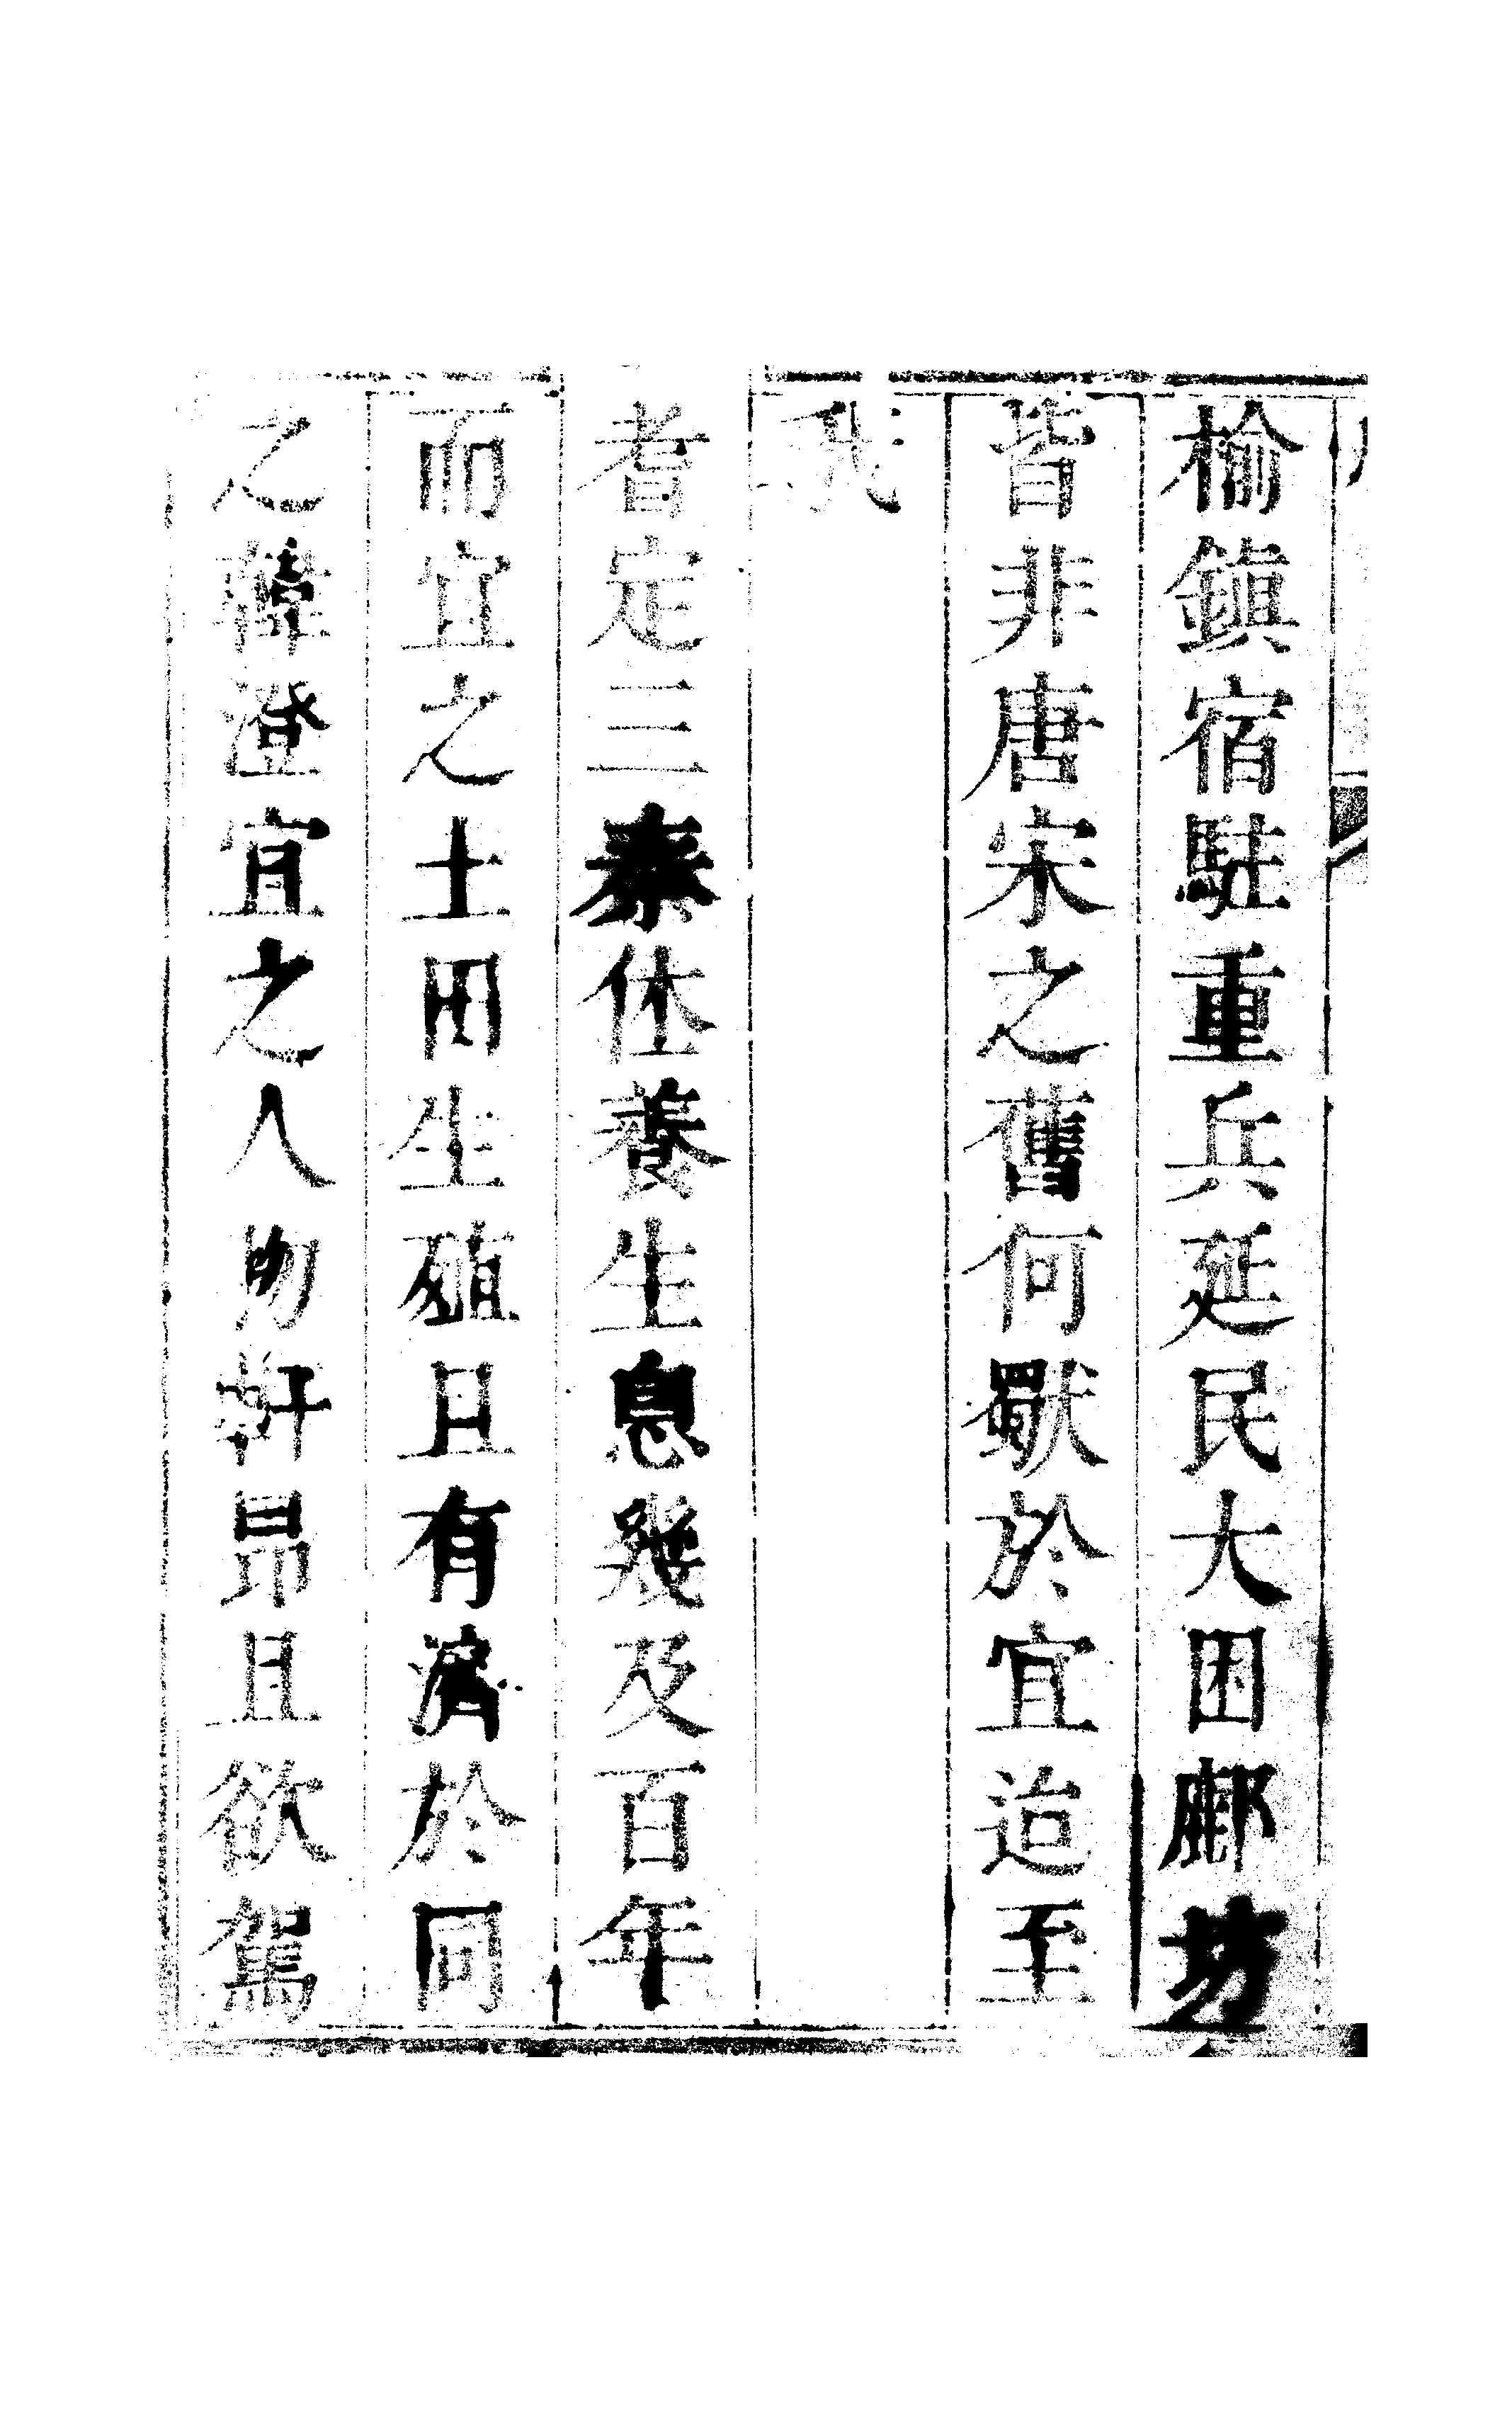 榆鎮宿駐重兵延民大困鄜坊
皆非唐宋之舊何獸於宜迨至
我
耆定三秦休養生息幾及百年
而宜之土田生殖且有濟於同
之韓澄宜之人物軒昂且欲駕